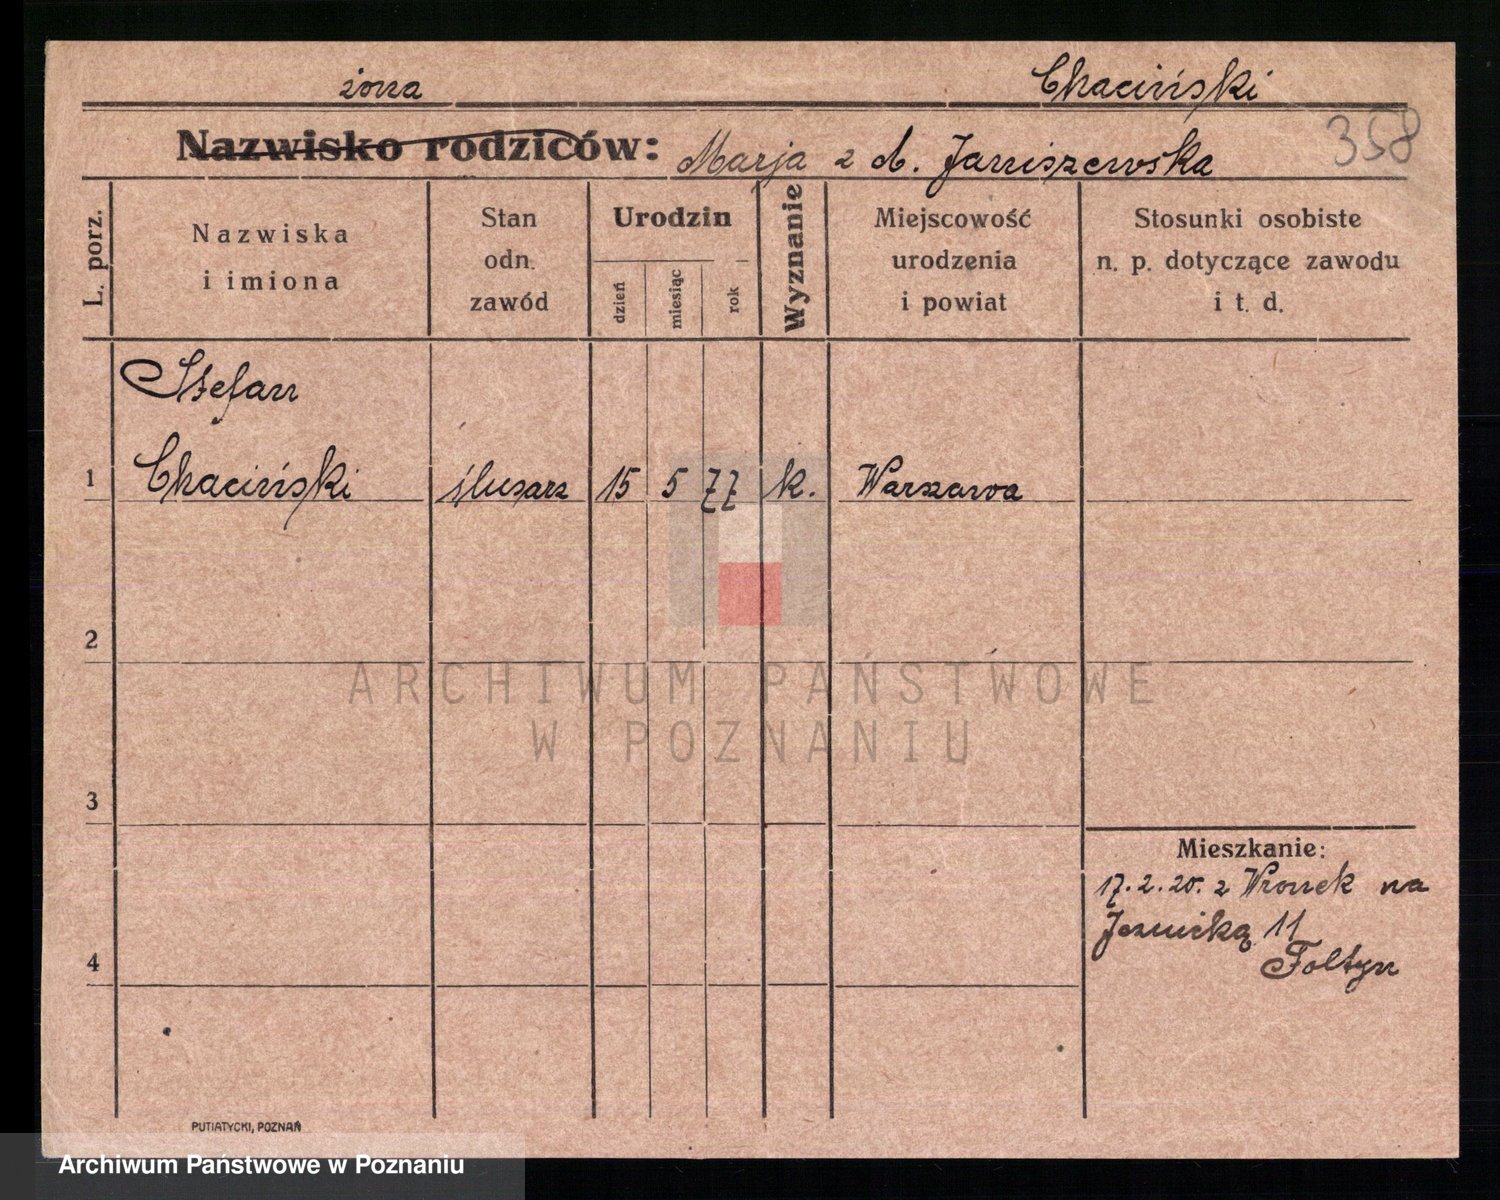 żona Chaciński
Nazwisko rodziców: Marja z d. Janiszewska 358
L. porz.
Nazwiska
i imiona
Stan
odn.
zawód
Urodzin
dzień
miesiąc
rok
Wyznanie
Miejscowość
urodzenia
i powiat
Stosunki osobiste
n. p. dotyczące zawodu
i t. d.
Stefan
1 Chaciński ślusarz 15 5 77 k. Warszawa
2
ARCHIWUM PAŃSTWOWE
W POZNANIU
3
Mieszkanie:
17.2.20. z Wronek na
Jezuicką 11
Foltyn
4
PUTIATYCKI, POZNAŃ
Archiwum Państwowe w Poznaniu